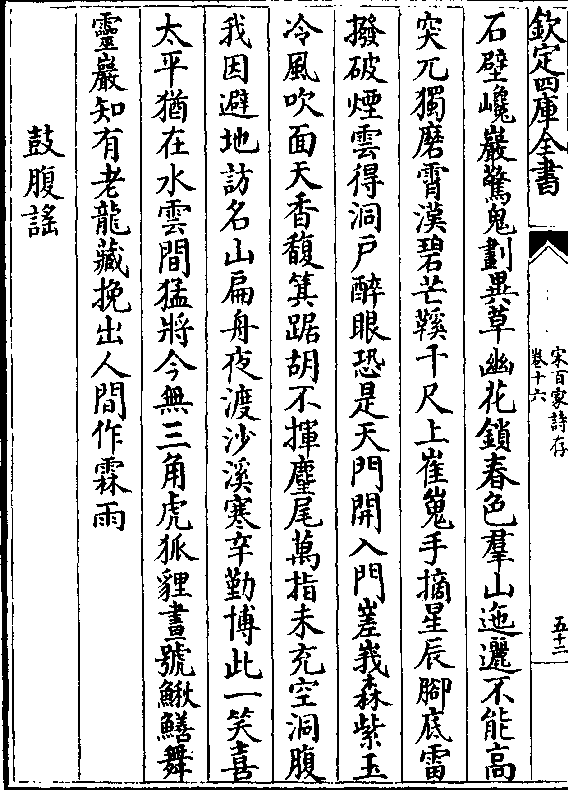 欽定四庫全書
宋百家詩存
卷十六
五十二
石壁巉巖驚鬼劃異草幽花鎖春色羣山迤邐不能高
突兀獨磨霄漢碧芒鞵千尺上崔嵬手摘星辰腳底雷
撥破煙雲得洞戶醉眼恐是天門開入門嵳峩森紫玉
冷風吹面天香馥箕踞胡不揮麈尾萬指未充空洞腹
我因避地訪名山扁舟夜渡沙溪寒辛勤博此一笑喜
太平猶在水雲間猛將今無三角虎狐貍晝號鰍鱔舞
靈巖知有老龍藏挽出人間作霖雨
鼓腹謠